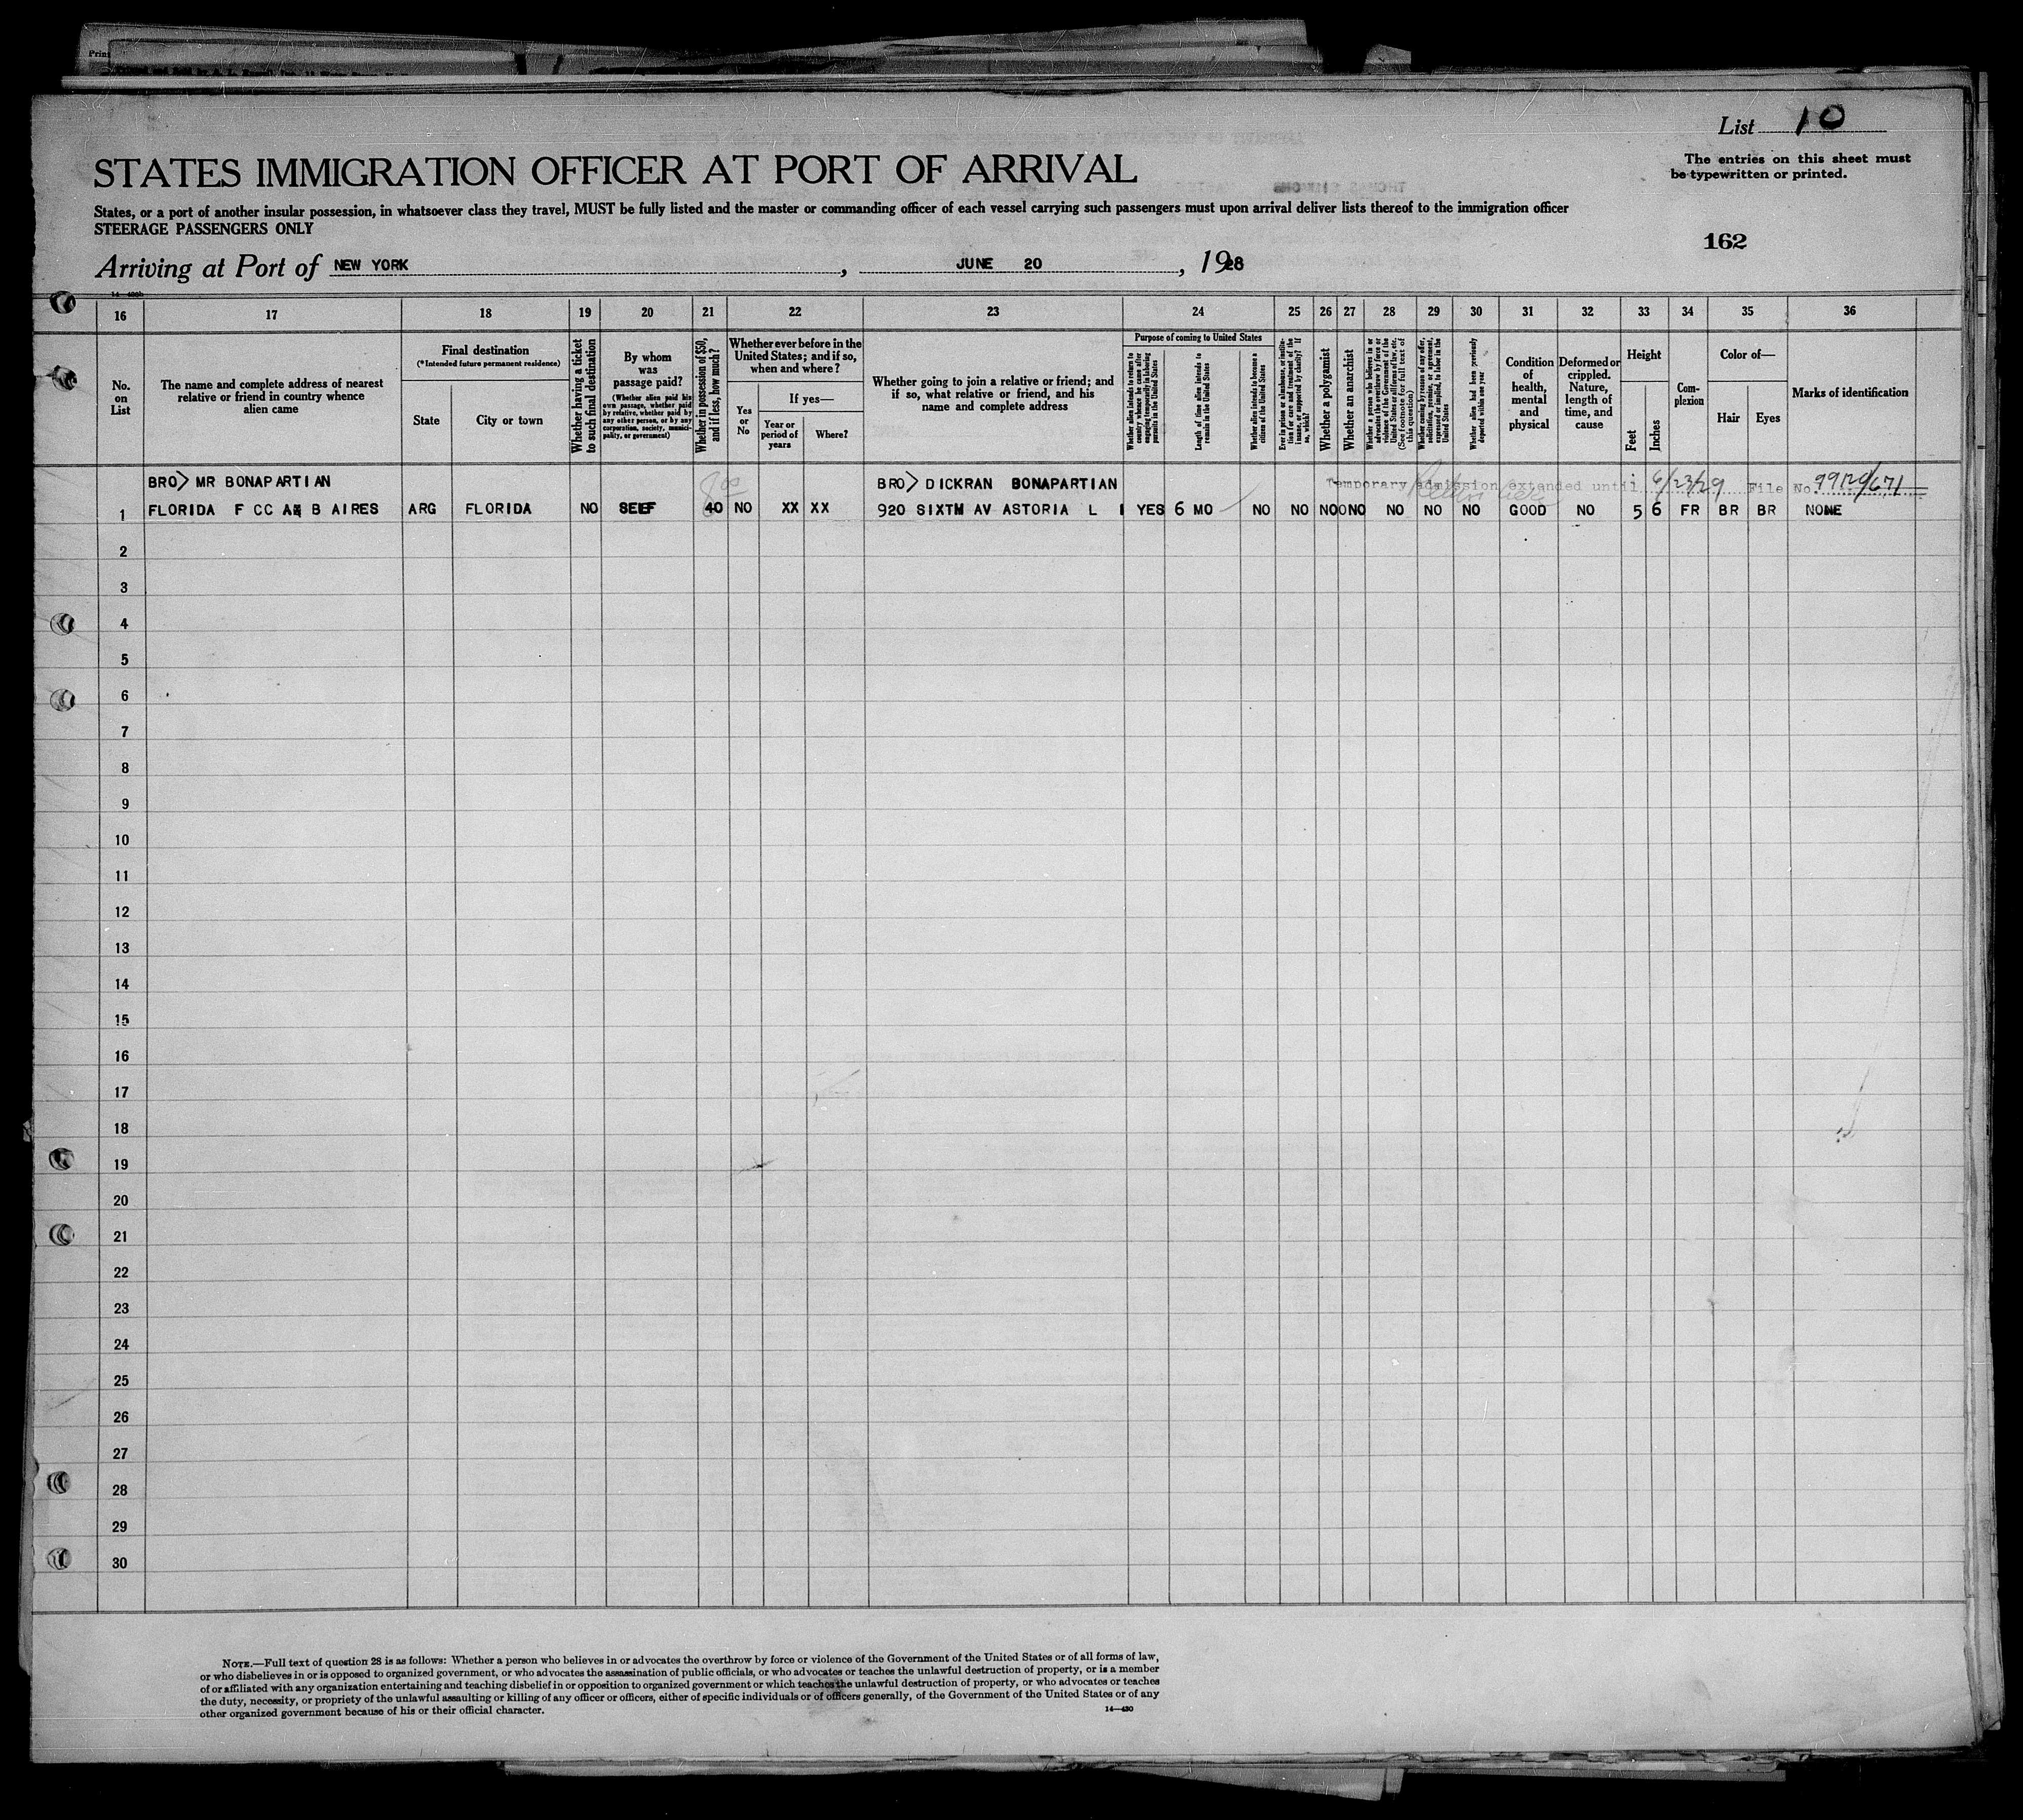 List 10
The entries on this sheet must
be typewritten or printed.
STATES IMMIGRATION OFFICER AT PORT OF ARRIVAL
States, or a port of another insular possession, in whatsoever class they travel, MUST be fully listed and the master or commanding officer of each vessel carrying such passengers must upon arrival deliver lists thereof to the immigration officer
STEERAGE PASSENGERS ONLY
162
Arriving at Port of NEW YORK, JUNE 20, 1928
16 17 18 19 20 21 22 23 24 25 26 27 28 29 30 31 32 33 34 35 36
No.
on
List
The name and complete address of nearest
relative or friend in country whence
alien came
Final destination
(*Intended future permanent residence)
State
City or town
Whether having a ticket
to such final destination
By whom
was
passage paid?
(Whether alien paid his
own passage, whether paid
by relative, whether paid by
any other person, or by any
corporation, society, munici-
pality, or government)
Whether in possession of $50,
and if less, how much?
Whether ever before in the
United States; and if so,
when and where?
Yes
or
No
If yes—
Year or
period of
years
Where?
Whether going to join a relative or friend; and
if so, what relative or friend, and his
name and complete address
Purpose of coming to United States
Whether alien intends to return to
country whence he came after
engaging temporarily in laboring
pursuits in the United States
Length of time alien intends to
remain in the United States
Whether alien intends to become a
citizen of the United States
Ever in prison or almshouse, or institu-
tion for care and treatment of the
insane, or supported by charity? If
so, which?
Whether a polygamist
Whether an anarchist
Whether a person who believes in or
advocates the overthrow by force or
violence of the Government of the
United States or all forms of law, etc.
(See footnote for full text of
this question)
Whether coming by reason of any offer,
solicitation, promise, or agreement,
expressed or implied, to labor in the
United States
Whether alien had been previously
deported within one year
Condition
of
health,
mental
and
physical
Deformed or
crippled.
Nature,
length of
time, and
cause
Height
Feet
Inches
Com-
plexion
Color of—
Hair
Eyes
Marks of identification
BRO> MR BONAPARTIAN BRO> DICKRAN BONAPARTIAN Temporary admission extended until 6/23/29 File No. 99129/671
1 FLORIDA F CC A B AIRES ARG FLORIDA NO SELF 40 NO XX XX 920 SIXTH AV ASTORIA L I YES 6 MO NO NO NO NO NO NO NO GOOD NO 5 6 FR BR BR NONE
2
3
4
5
6
7
8
9
10
11
12
13
14
15
16
17
18
19
20
21
22
23
24
25
26
27
28
29
30
NOTE.—Full text of question 28 is as follows: Whether a person who believes in or advocates the overthrow by force or violence of the Government of the United States or of all forms of law,
or who disbelieves in or is opposed to organized government, or who advocates the assassination of public officials, or who advocates or teaches the unlawful destruction of property, or is a member
of or affiliated with any organization entertaining and teaching disbelief in or opposition to organized government or which teaches the unlawful destruction of property, or who advocates or teaches
the duty, necessity, or propriety of the unlawful assaulting or killing of any officer or officers, either of specific individuals or of officers generally, of the Government of the United States or of any
other organized government because of his or their official character.
14—430